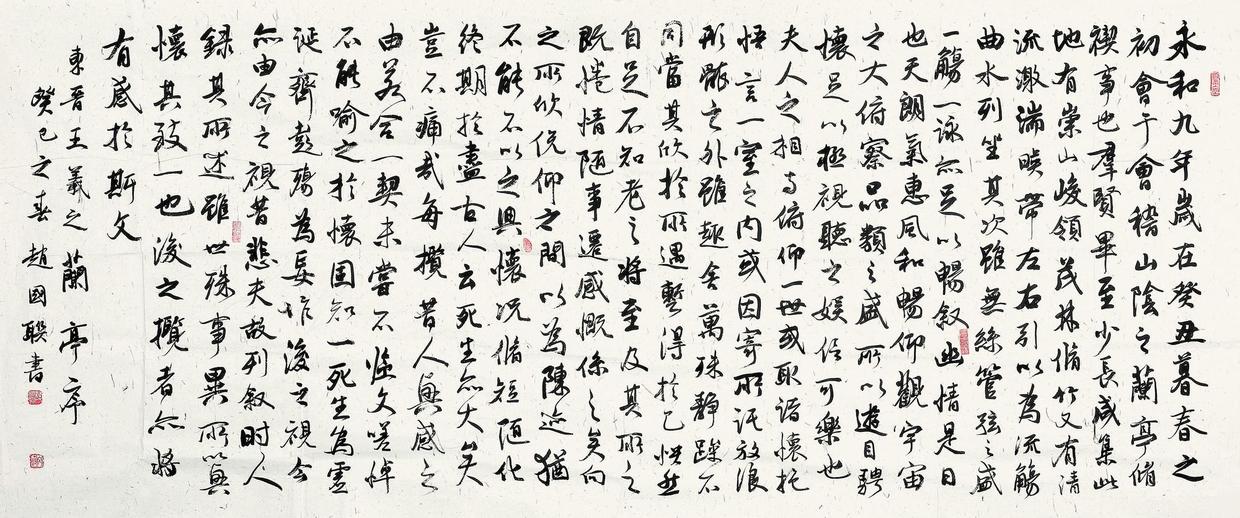 永和九年歲在癸丑暮春之
初會于會稽山陰之蘭亭脩
禊事也羣賢畢至少長咸集此
地有崇山峻領茂林脩竹又有清
流激湍暎帶左右引以為流觴
曲水列坐其次雖無絲管弦之盛
一觴一詠亦足以暢敘幽情是日
也天朗氣惠風和暢仰觀宇宙
之大俯察品類之盛所以遊目騁
懷足以極視聽之娛信可樂也
夫人之相與俯仰一世或取諸懷托
悟言一室之內或因寄所託放浪
形骸之外雖趣舍萬殊靜躁不
同當其欣於所遇暫得於己怏然
自足不知老之將至及其所之
既惓情隨事遷感慨係之矣向
之所欣俛仰之間以為陳迹猶
不能不以之興懷況脩短隨化
終期於盡古人云死生亦大矣
豈不痛哉每攬昔人興感之
由若合一契未嘗不臨文嗟悼
不能喻之於懷固知一死生為虛
誕齊彭殤為妄作後之視今
亦由今之視昔悲夫故列敘時人
録其所述雖世殊事異所以興
懷其致一也後之攬者亦將
有感於斯文
東晉王羲之蘭亭序
癸巳之春趙國聯書